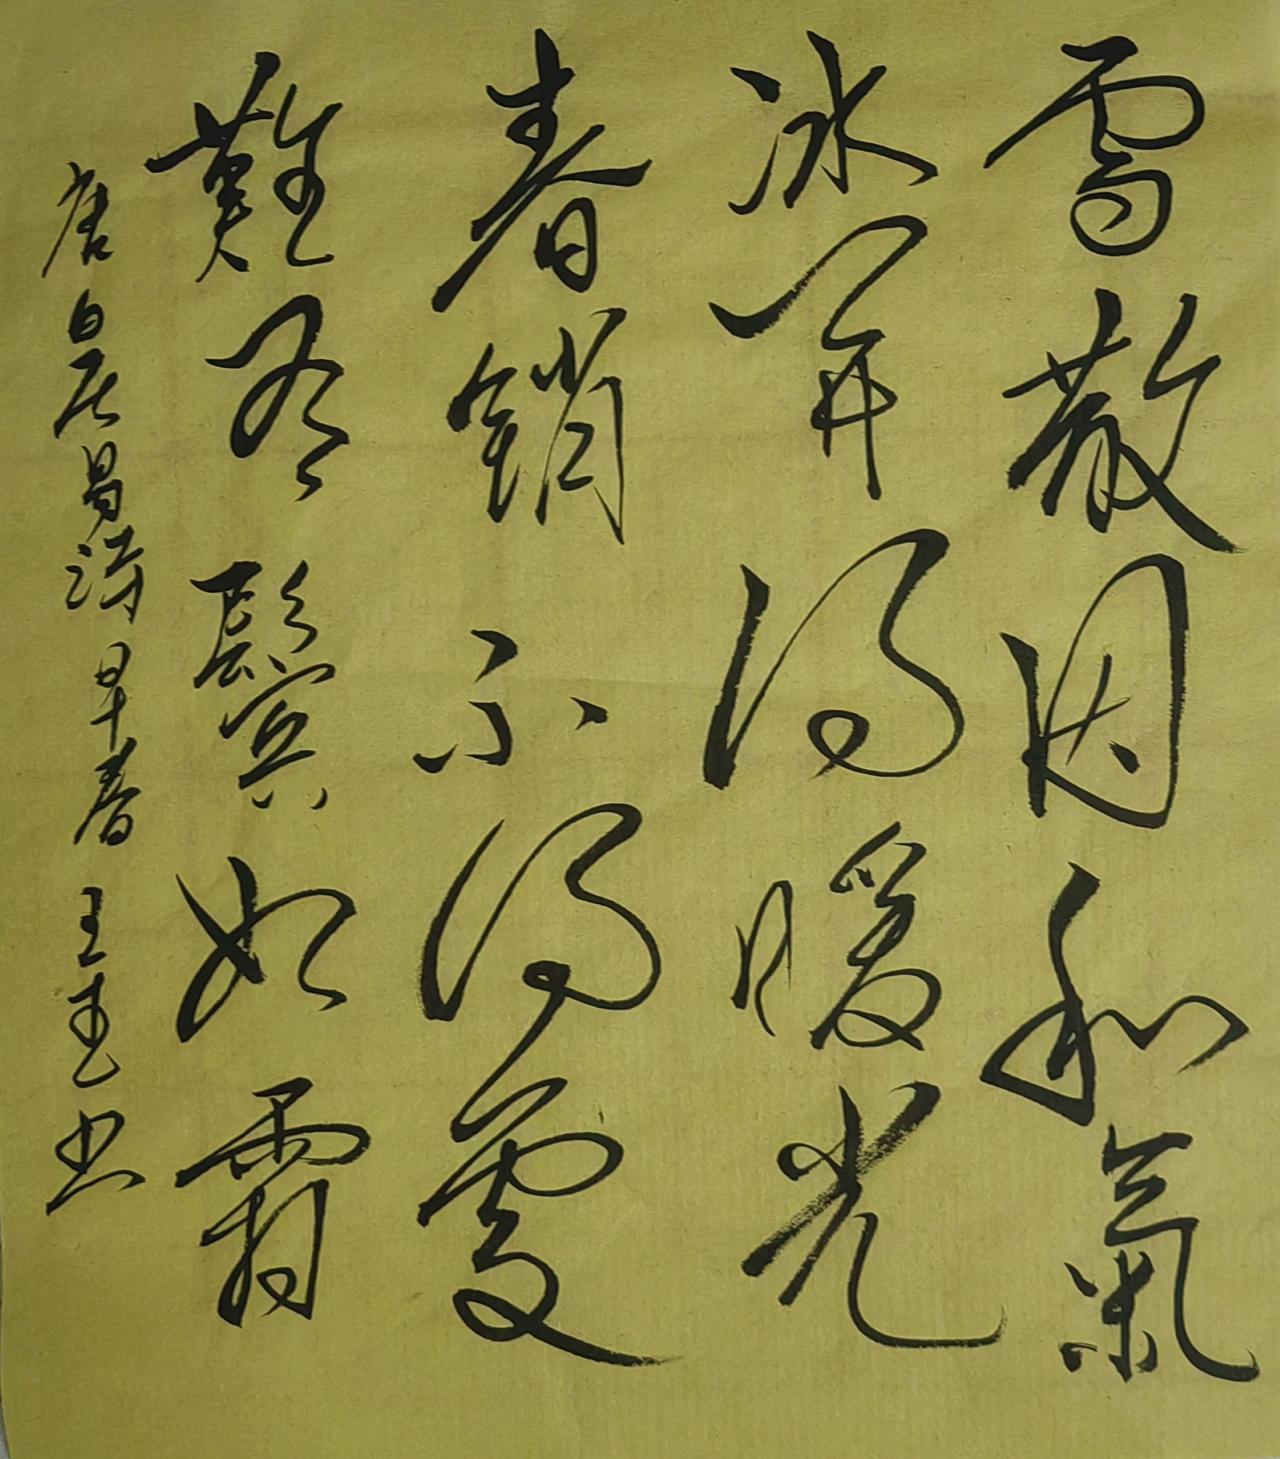 雪散因和氣
冰開得暖光
春銷不得處
難有鬢如霜
唐白居易詩早春 王 书